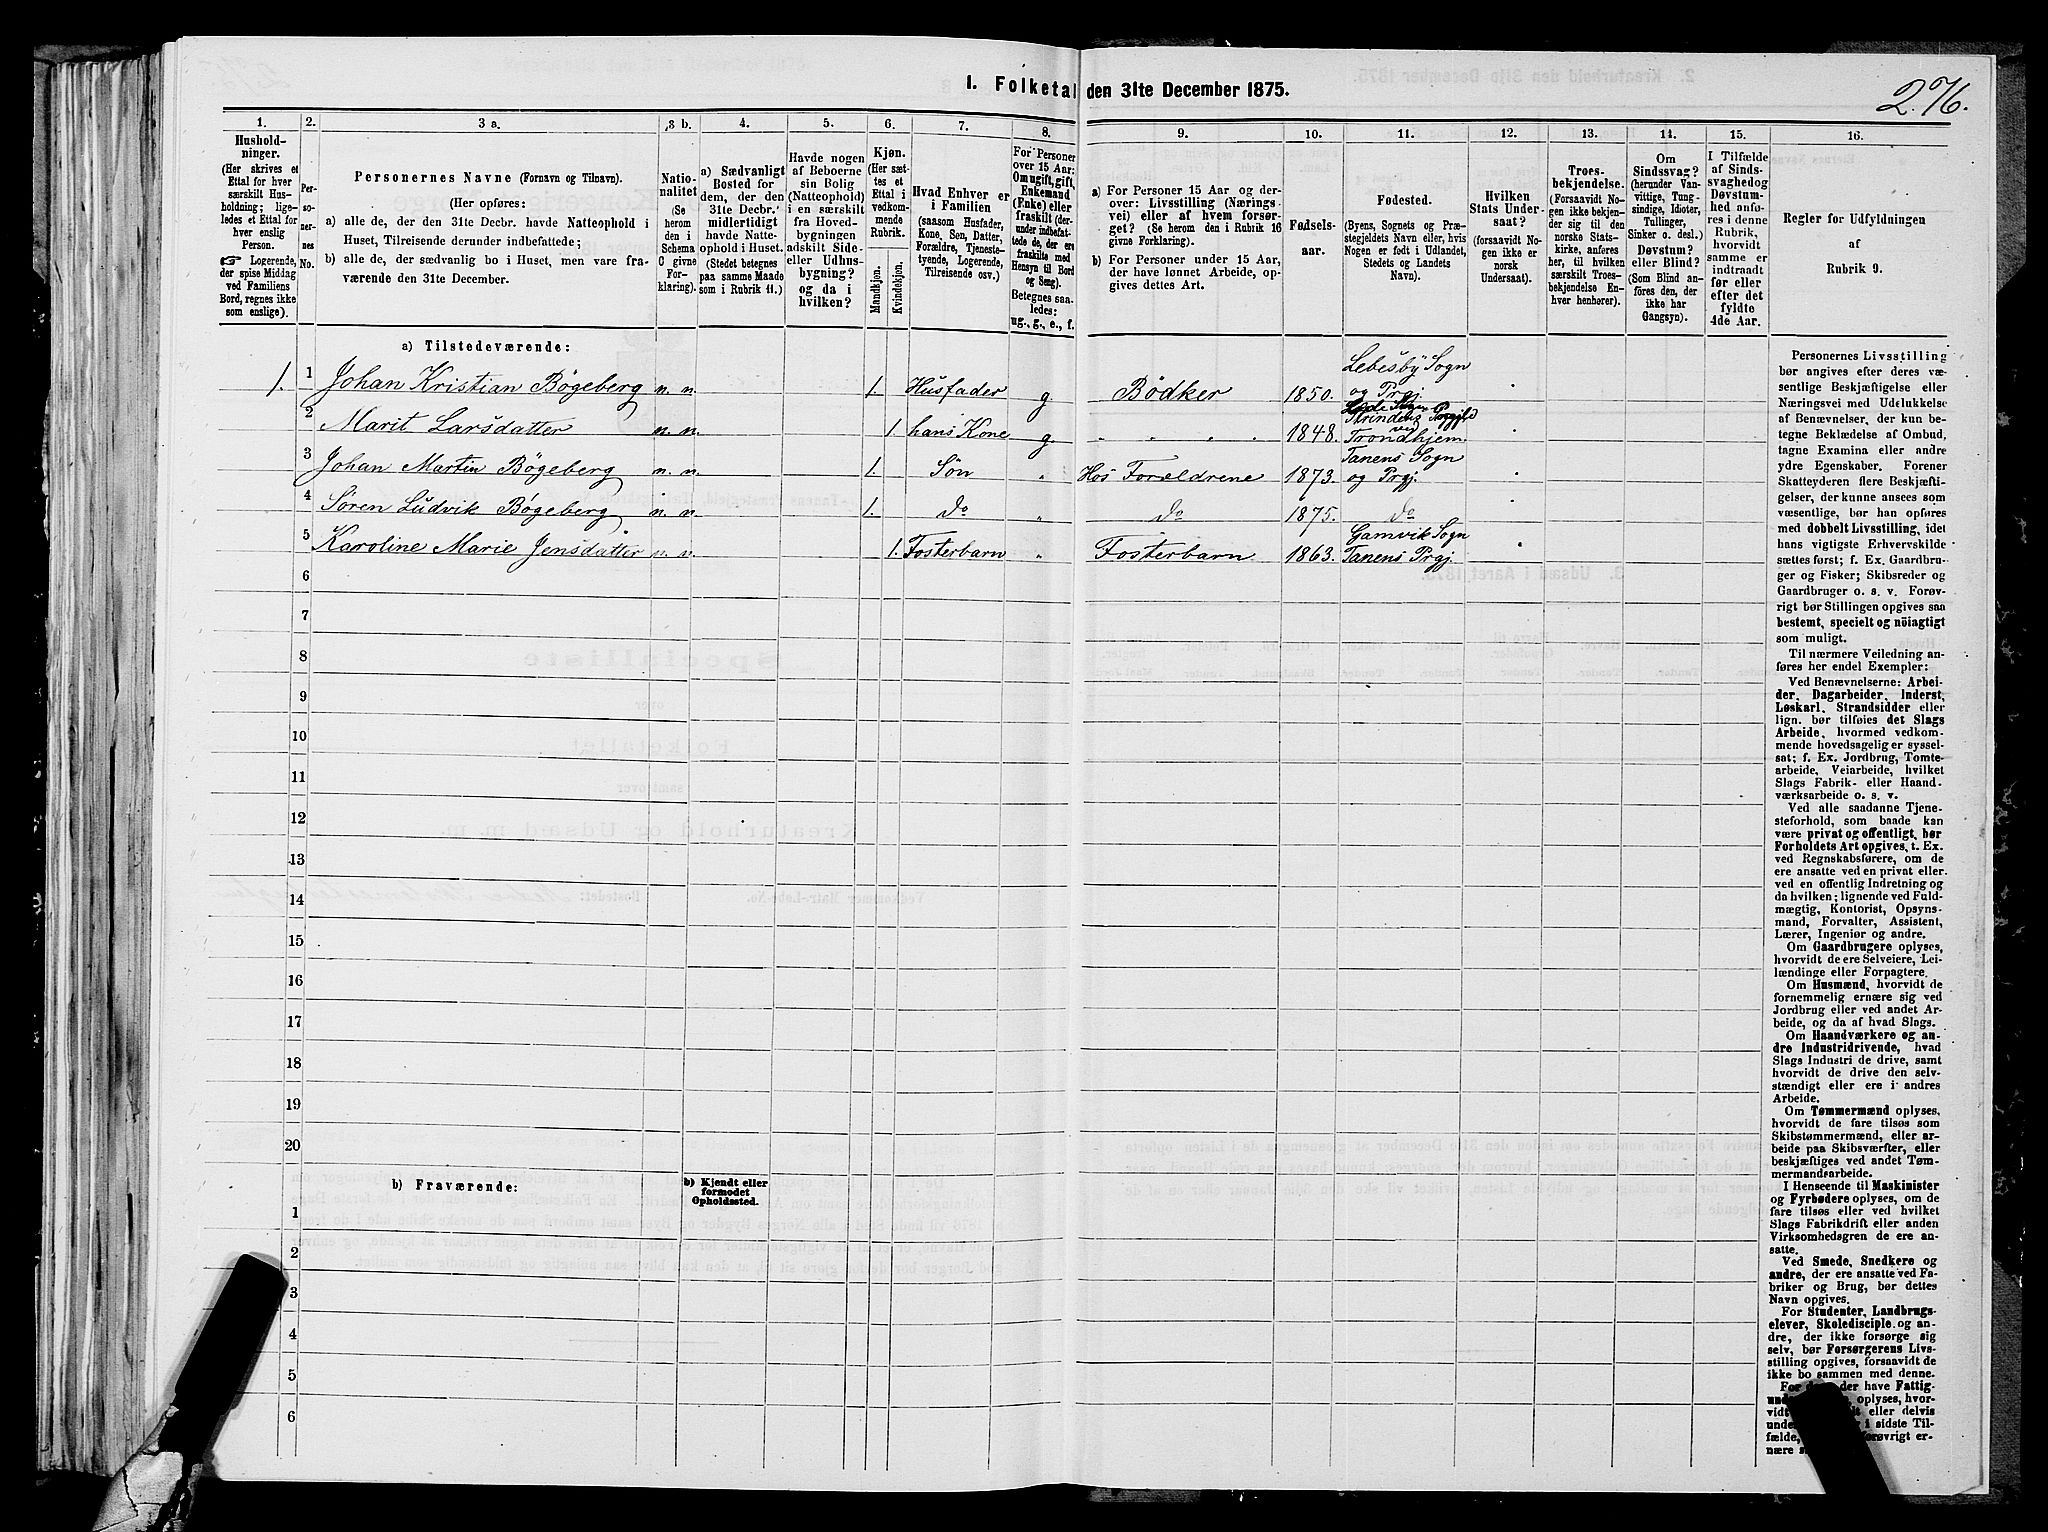 1. Folketal den 31te December 1875.
276.
1. 2. 3 a. 3 b. 4. 5. 6. 7. 8. 9. 10. 11. 12. 13. 14. 15. 16.
Hushold-
ninger.
(Her skrives et
Ettal for hver
særskilt Hus-
holdning; lige-
ledes et Ettal for
hver enslig
Person.
☞ Logerende,
der spise Middag
ved Familiens
Bord, regnes ikke
som enslige).
Per-
so-
ner-
nes
No.
Personernes Navne (Fornavn og Tilnavn).
(Her opføres:
a) alle de, der den 31te Decbr. havde Natteophold i
Huset, Tilreisende derunder indbefattede;
b) alle de, der sædvanlig bo i Huset, men vare fra-
værende den 31te December.
Natio-
nalitet
(Se
herom
den i
Schema
C givne
For-
klaring).
a) Sædvanligt
Bosted for
dem, der den
31te Decbr.
midlertidigt
havde Natte-
ophold i Huset.
(Stedet betegnes
paa samme Maade
som i Rubrik 11.)
Havde nogen
af Beboerne
sin Bolig
(Natteophold)
i en særskilt
fra Hoved-
bygningen
adskilt Side-
eller Udhus-
bygning?
og da i
hvilken?
Kjøn.
(Her sæt-
tes et
Ettal i
vedkom-
mende
Rubrik.
Mandkjøn.
Kvindekjøn.
Hvad Enhver er
i Familien
(saasom Husfader,
Kone, Søn, Datter,
Forældre, Tjeneste-
tyende, Logerende,
Tilreisende osv.)
For Personer
over 15 Aar:
Om ugift, gift,
Enkemand
(Enke) eller
fraskilt (der-
under indbefat-
tede de, der ere
fraskilte med
Hensyn til Bord
og Seng).
Betegnes saa-
ledes:
ug., g., e., f.
a) For Personer 15 Aar og der-
over: Livsstilling (Nærings-
vei) eller af hvem forsør-
get? (Se herom den i Rubrik 16
givne Forklaring).
b) For Personer under 15 Aar,
der have lønnet Arbeide, op-
gives dettes Art.
Fødsels-
aar.
Fødested.
(Byens, Sognets og Præ-
stegjeldets Navn eller, hvis
Nogen er født i Udlandet,
Stedets og Landets
Navn).
Hvilken
Stats Under-
saat?
(forsaavidt No-
gen ikke er
norsk
Undersaat).
Troes-
bekjendelse.
(Forsaavidt No-
gen ikke bekjen-
der sig til den
norske Stats-
kirke, anføres
her, til hvilken
særskilt Troes-
bekjendelse En-
hver henhører).
Om
Sindssvag?
(herunder Van-
vittige, Tung-
sindige, Idioter,
Tullinger,
Sinker o. desl.)
Døvstum?
eller Blind?
(Som Blind an-
føres den, der
ikke har
Gangsyn).
I Tilfælde
af Sinds-
svaghed og
Døvstum-
hed anfø-
res i denne
Rubrik,
hvorvidt
samme er
indtraadt
før eller
efter det
fyldte
4de Aar.
Regler for Udfyldningen
af
Rubrik 9.
a) Tilstedeværende:
1. 1 Johan Kristian Bøgeberg n. n. 1. Husfader g. Bødker 1850. Lebesby Sogn
og Prgj.
2 Marit Larsdatter n. n. 1. hans Kone g. " " " " 1848. Lade Sogn
Strindens Prgjld
ved
Trondhjem.
3 Johan Martin Bøgeberg n. n. 1. Søn " Hos Forældrene 1873. Tanens Sogn
og Prgj.
4 Søren Ludvik Bøgeberg n. n. 1. do " do 1875. do
5 Karoline Marie Jensdatter n. n. 1. Fosterbarn " Fosterbarn 1863. Gamvik Sogn
Tanens Prgj.
6
7
8
9
10
11
12
13
14
15
16
17
18
19
20
b) Fraværende:
b) Kjendt eller
formodet
Opholdssted.
1
2
3
4
5
6
Personernes Livsstilling
bør angives efter deres væ-
sentlige Beskjæftigelse eller
Næringsvei med Udelukkelse
af Benævnelser, der kun be-
tegne Beklædelse af Ombud,
tagne Examina eller andre
ydre Egenskaber. Forener
Skatteyderen flere Beskjæfti-
gelser, der kunne ansees som
væsentlige, bør han opføres
med dobbelt Livsstilling, idet
hans vigtigste Erhvervskilde
sættes først; f. Ex. Gaardbru-
ger og Fisker; Skibsreder og
Gaardbruger o. s. v. Forøv-
rigt bør Stillingen opgives saa
bestemt, specielt og nöiagtigt
som muligt.
Til nærmere Veiledning an-
føres her endel Exempler:
Ved Benævnelserne: Arbei-
der, Dagarbeider, Inderst,
Løskarl, Strandsidder eller
lign. bør tilføies det Slags
Arbeide, hvormed vedkom-
mende hovedsagelig er syssel-
sat; f. Ex. Jordbrug, Tomte-
arbeide, Veiarbeide, hvilket
Slags Fabrik- eller Haand-
værksarbeide o. s. v.
Ved alle saadanne Tjene-
steforhold, som baade kan
være privat og offentligt, bør
Forholdets Art opgives, t. Ex.
ved Regnskabsførere, om de
ere ansatte ved en privat eller
ved en offentlig Indretning og
da hvilken; lignende ved Fuld-
mægtig, Kontorist, Opsyns-
mand, Forvalter, Assistent,
Lærer, Ingeniør og andre.
Om Gaardbrugere oplyses,
hvorvidt de ere Selveiere, Lei-
lændinge eller Forpagtere.
Om Husmænd, hvorvidt de
fornemmelig ernære sig ved
Jordbrug eller ved andet Ar-
beide, og da af hvad Slags.
Om Haandværkere og an-
dre Industridrivende, hvad
Slags Industri de drive, samt
hvorvidt de drive den selv-
stændigt eller ere i andres
Arbeide.
Om Tømmermænd oplyses,
hvorvidt de fare tilsøs som
Skibstømmermænd, eller ar-
beide paa Skibsværfter, eller
beskjæftiges ved andet Tøm-
mermandsarbeide.
I Henseende til Maskinister
og Fyrbødere oplyses, om de
fare tilsøs eller ved hvilket
Slags Fabrikdrift eller anden
Virksomhedsgren de ere an-
satte.
Ved Smede, Snedkere og
andre, der ere ansatte ved Fa-
briker og Brug, bør dettes
Navn opgives.
For Studenter, Landbrugs-
elever, Skoledisciple og an-
dre, der ikke forsørge sig
selv, bør Forsørgerens Livs-
stilling opgives, forsaavidt de
ikke bo sammen med denne.
For der have Fattig-
oplyses, hvor-
vidt eller delvis
under i sidste Til-
fælde, forøvrigt er-
nære